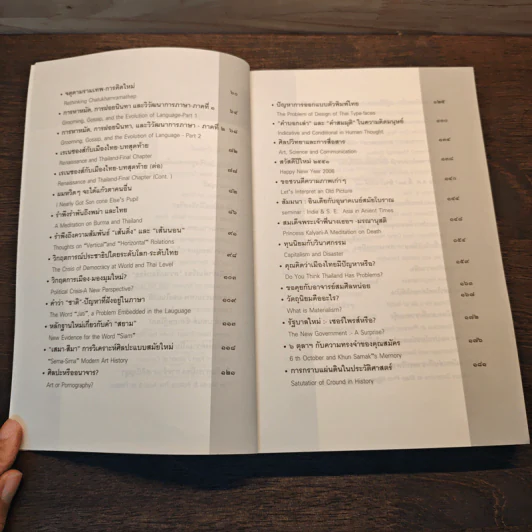 • จตุคามรามเทพ การคิดใหม่ ๖๐
Rethinking Chatukhamramathep
• การหาหมัด, การฝอยนินทา และวิวัฒนาการภาษา-ภาคที่ ๑ ๖๔
Grooming, Gossip, and the Evolution of Language-Part 1
• การหาหมัด, การฝอยนินทา, และวิวัฒนาการภาษา - ภาคที่ ๒
Grooming, Gossip, and the Evolution of Language - Part 2
• เรเนซองส์กับเมืองไทย-บทสุดท้าย
Renaissance and Thailand-Final Chapter
• เรเนซองส์กับเมืองไทย-บทสุดท้าย (ต่อ)
Renaissance and Thailand-Final Chapter (Cont. )
• ผมหวิดๆ จะได้แก้วตาคนอื่น
( Nearly Got Son come Else"s Pupil
• รำพึงรำพันถึงพม่า และไทย
A Meditation on Burma and Thailand
• รำพึงถึงความสัมพันธ์ "เส้นดิ่ง" และ "เส้นนอน"
Thoughts on "Vertical"and "Horizontal" Relations
• วิกฤตการณ์ประชาธิปไตยระดับโลก-ระดับไทย ๙๘
The Crisis of Democracy at World and Thai Level
• วิกฤตการเมือง-มองมุมใหม่? ๑๐๓
Political Crisis-A New Perspective?
• คำว่า "ชาติ"-ปัญหาที่ฝังอยู่ในภาษา ๑๐๙
The Word "Jati", a Problem Embedded in the Lauguage
• หลักฐานใหม่เกี่ยวกับคำ "สยาม" ๑๑๓
New Evidence for the Word "Siam"
• "เสมา-สีมา" การวิเคราะห์ศิลปะแบบสมัยใหม่ ๑๑๘
"Sema-Sima" Modern Art History
• ศิลปะหรืออนาจาร? ๑๒๐
Art or Pornography?
• ปัญหาการออกแบบตัวพิมพ์ไทย ๑๒๕
The Problem of Design of Thai Type-faces
• "คำบอกเล่า" และ "คำสมมุติ" ในความคิดมนุษย์ ๑๓๐
Indicative and Conditional in Human Thought
• ศิลป์วิทยาและการสื่อสาร ๑๓๔
Art, Science and Communication
• สวัสดีปีใหม่ ๒๕๕๑ ๑๓๘
Happy New Year 2008
• ขอชวนตีความภาพเก่าๆ
Let"s Interpret an Old Picture
• สัมมนา : อินเดียกับอุษาคเนย์สมัยโบราณ ๑๔๔
seminar : India & S. E. Asia in Ancient Times
• สมเด็จพระเจ้าพี่นางเธอฯ -มรณานุสติ
Princess Kalyani-A Meditation on Death
• ทุนนิยมกับวินาศกรรม ๑๕๔
Capitalism and Disaster
• คุณคิดว่าเมืองไทยมีปัญหาหรือ? ๑๕๙
Do You Think Thailand Has Problems?
• ขอคุยกับอาจารย์สมศีลหน่อย ๑๖๓
• วัตถุนิยมคืออะไร? ๑๖๗
What is Materialism?
• รัฐบาลใหม่ : เซอร์ไพรส์หรือ? ๑๗๒
The New Government - A Surprise?
• ๖ ตุลาฯ กับความทรงจำของคุณสมัคร ๑๗๖
6 th October and Khun Samak"s Memory
• การกราบแผ่นดินในประวัติศาสตร์ ๑๘๑
Salutation of Ground in History